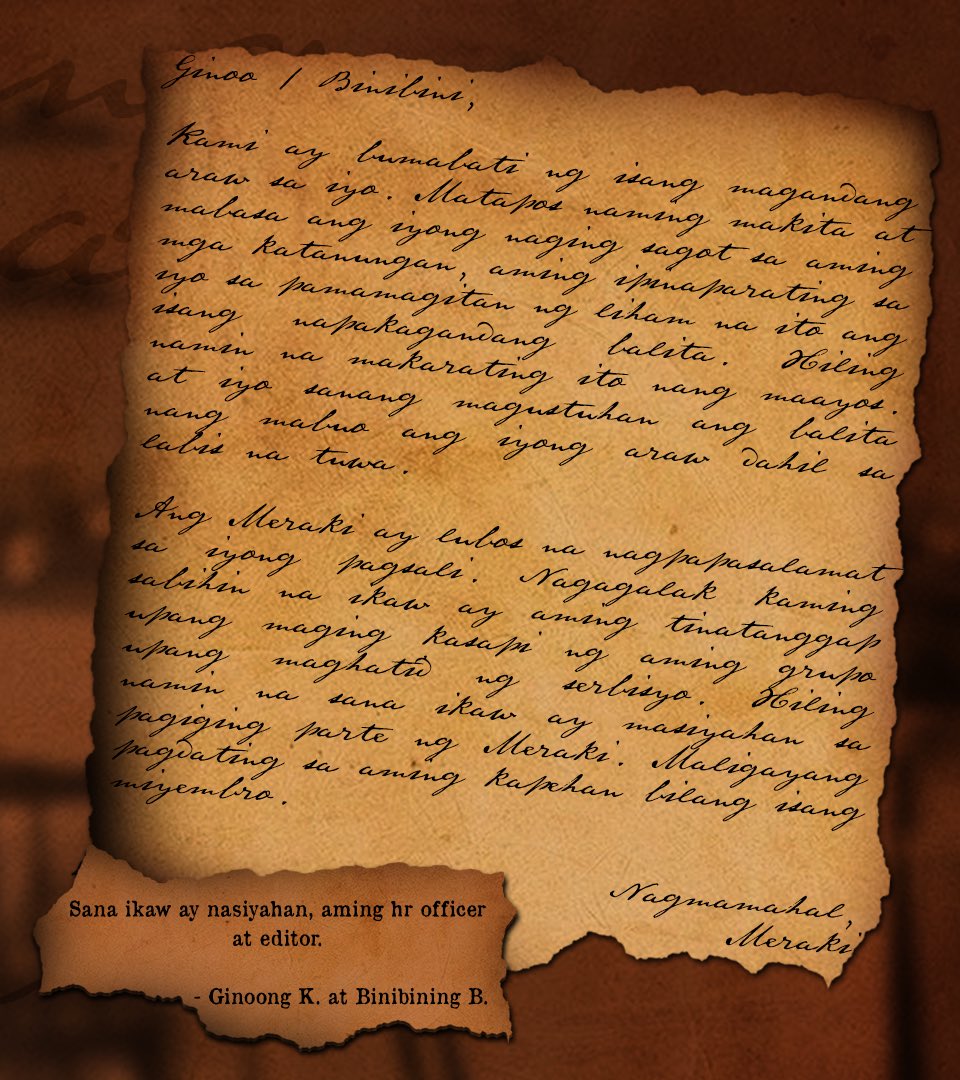 Ginoo / Binibini,
Kami ay bumabati ng isang magandang
araw sa iyo. Matapos naming makita at
mabasa ang iyong naging sagot sa aming
mga katanungan, aming ipinaparating sa
iyo sa pamamagitan ng liham na ito ang
isang napakagandang balita. Hiling
namin na makarating ito nang maayos.
at iyo sanang magustuhan ang balita
nang mabuo ang iyong araw dahil sa
labis na tuwa.
Ang Meraki ay lubos na nagpapasalamat
sa iyong pagsali. Nagagalak kaming
sabihin na ikaw ay aming tinatanggap
upang maging kasapi ng aming grupo
upang maghatid ng serbisyo. Hiling
namin na sana ikaw ay masiyahan sa
pagiging parte ng Meraki. Maligayang
pagdating sa aming kapehan bilang isang
miyembro.
Nagmamahal,
Meraki
Sana ikaw ay nasiyahan, aming hr officer
at editor.
- Ginoong K. at Binibining B.